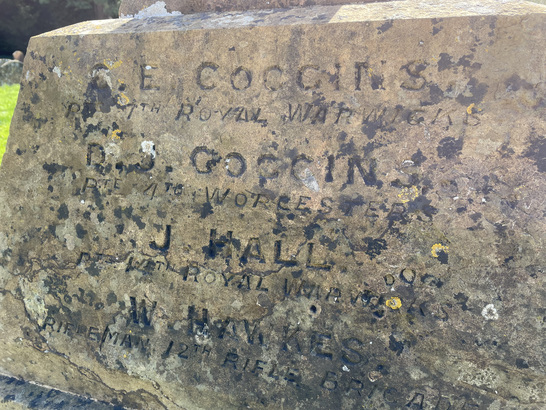 E COGGINS
PTE 7TH ROYAL WARWICKS
D.J. GOGGINS
PTE 4TH WORCESTERS
J. HALL
ROYAL WARWICKS
W. HAWKES
RIFLEMAN 12TH RIFLE BRIGADE